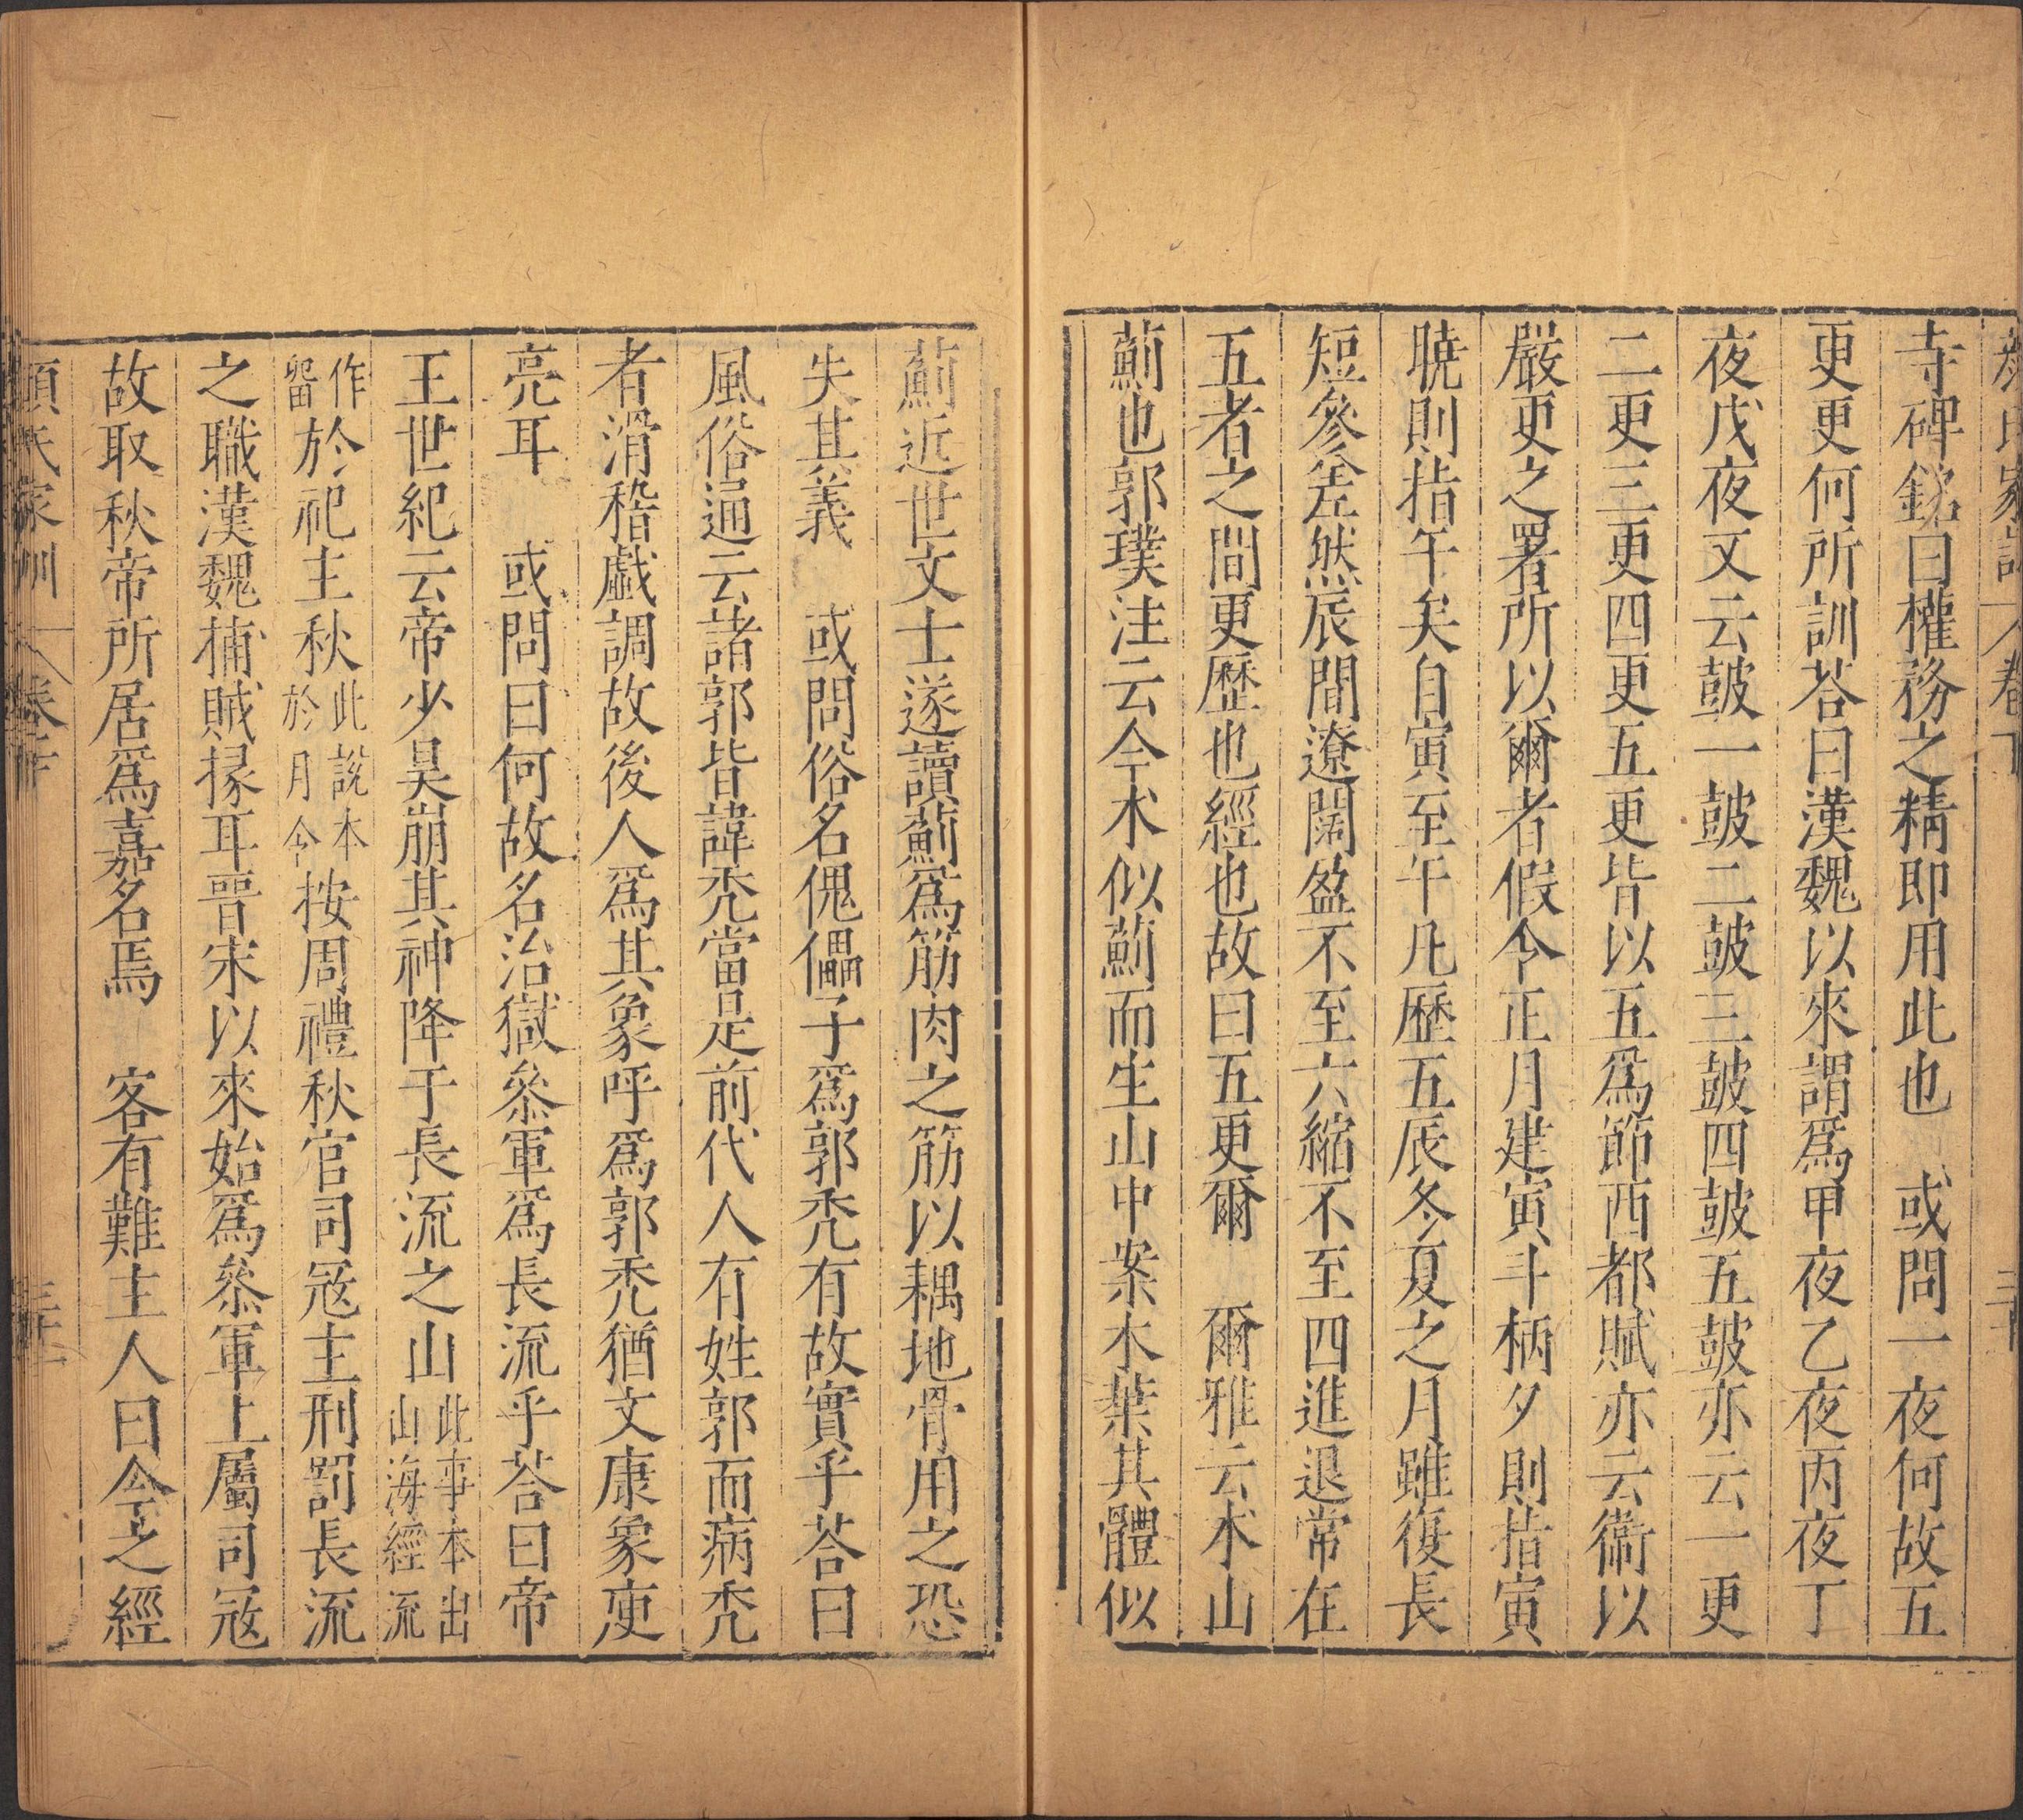 顏氏家訓 卷下 三十
寺碑銘曰權務之精即用此也　或問一夜何故五
更更何所訓荅曰漢魏以來謂爲甲夜乙夜丙夜丁
夜戊夜又云皷一皷二皷三皷四皷五皷亦云一更
二更三更四更五更皆以五爲節西都賦亦云衞以
嚴更之署所以爾者假令正月建寅斗柄夕則指寅
曉則指午矣自寅至午凡歷五辰冬夏之月雖復長
短參差然辰間遼闊盈不至六縮不至四進退常在
五者之間更歷也經也故曰五更爾　爾雅云朮山
薊也郭璞注云今朮似薊而生山中案朮葉其體似
薊近世文士遂讀薊爲筋肉之筋以耦地骨用之恐
失其義　或問俗名傀儡子爲郭禿有故實乎荅曰
風俗通云諸郭皆諱禿當是前代人有姓郭而病禿
者滑稽戲調故後人爲其象呼爲郭禿猶文康象庾
亮耳　或問曰何故名治獄叅軍爲長流乎荅曰帝
王世紀云帝少昊崩其神降于長流之山此事本出山海經流
作畱於祀主秋此說本於月令按周禮秋官司寇主刑罰長流
之職漢魏捕賊掾耳晉宋以來始爲叅軍上屬司寇
故取秋帝所居爲嘉名焉　客有難主人曰今之經
顏氏家訓 卷下 三十一